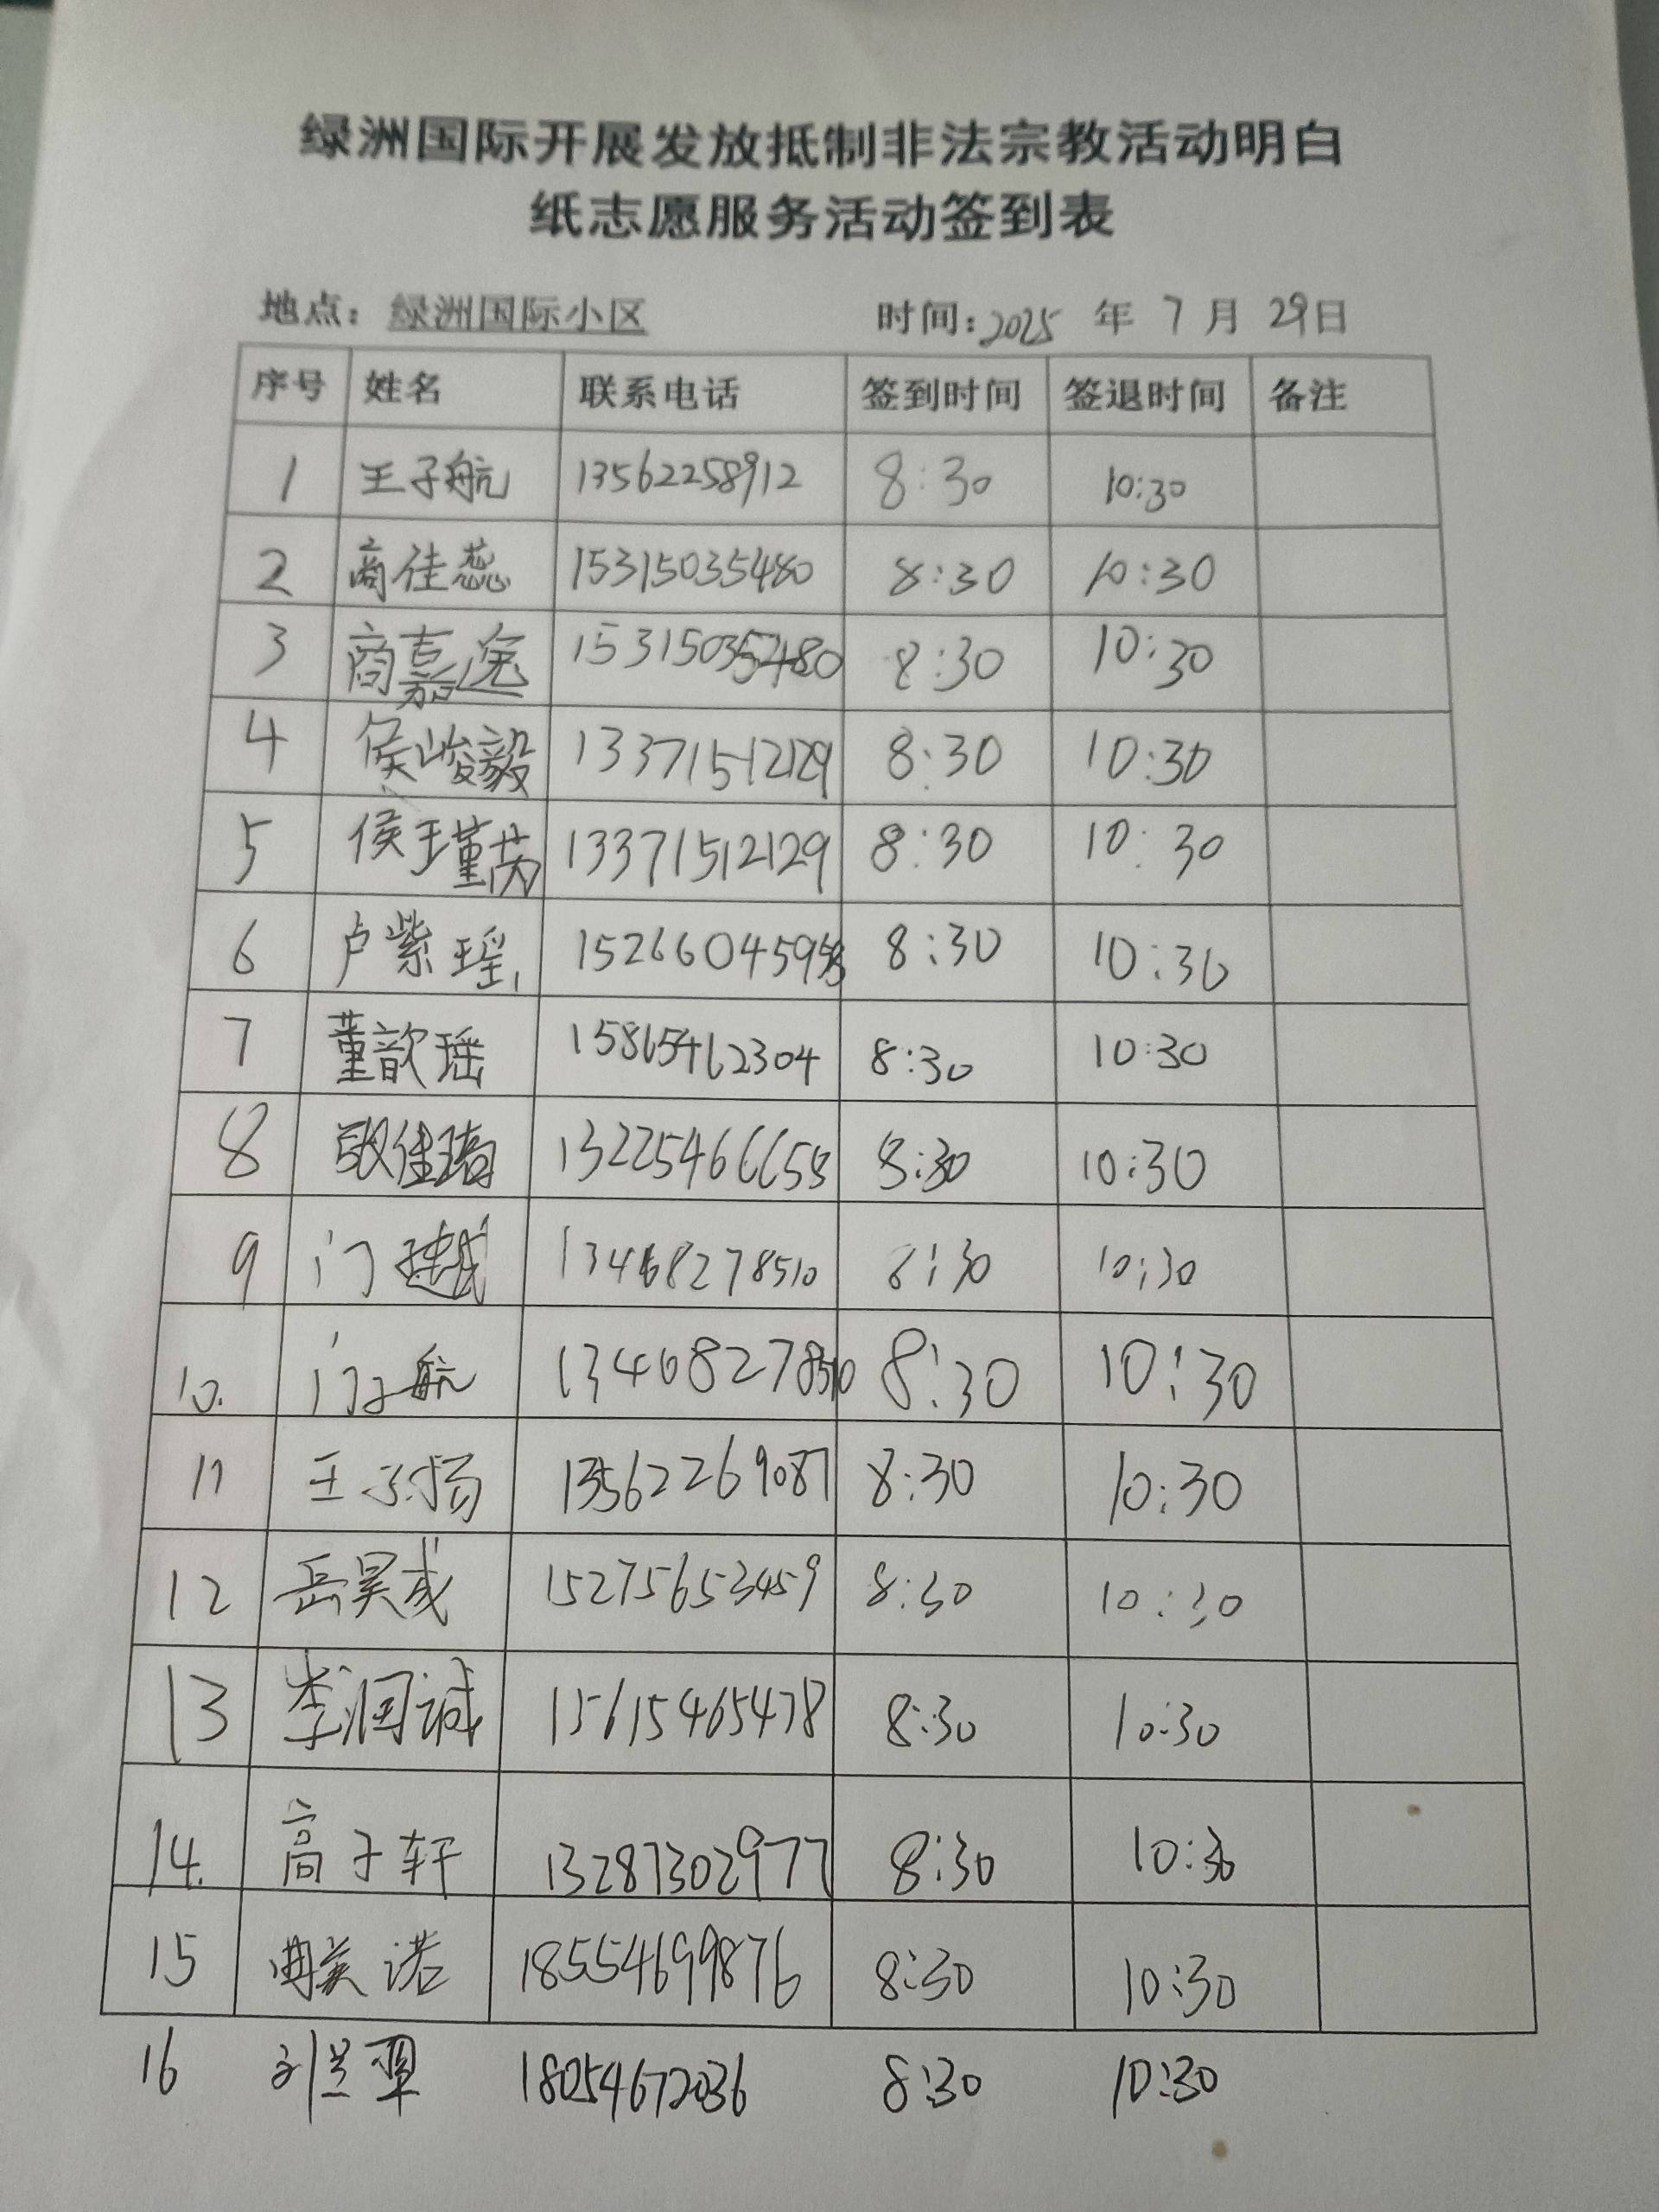 绿洲国际开展发放抵制非法宗教活动明白
纸志愿服务活动签到表
地点：绿洲国际小区 时间：2025 年 7 月 29日
序号 姓名 联系电话 签到时间 签退时间 备注
1 王子航 13562258912 8:30 10:30
2 商佳蕊 15315035480 8:30 10:30
3 商嘉逸 15315035480 8:30 10:30
4 侯峻毅 13371512129 8:30 10:30
5 侯瑾芮 13371512129 8:30 10:30
6 卢紫瑶 8:30 10:30
7 董歆瑶 15865462304 8:30 10:30
8 13225466658 8:30 10:30
9 门 13468278510 8:30 10:30
10. 门子航 13468278510 8:30 10:30
11 王子扬 13562269087 8:30 10:30
12 岳昊成 15275653459 8:30 10:30
13 李润诚 15615465478 8:30 10:30
14. 高子轩 13287302977 8:30 10:30
15 诺 18554699876 8:30 10:30
16 刘兰翠 18054672036 8:30 10:30